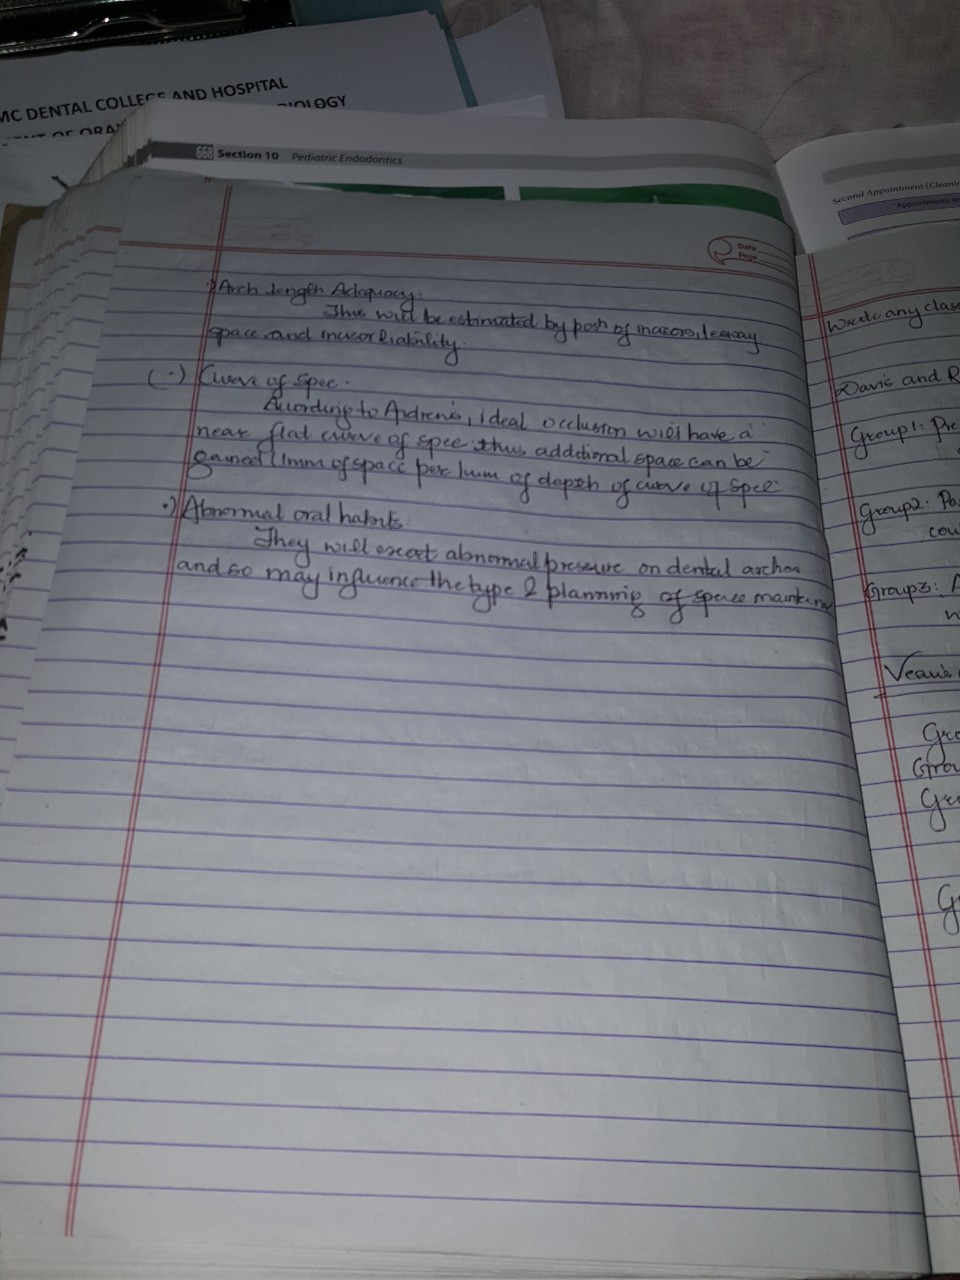 MC DENTAL COLLEGE AND HOSPITAL
OLOGY
OF ORA
658 Section 10 Pediatric Endodontics
Second Appointment (Cleani
Date
Page
·) Arch length Adequacy:
This will be estimated by posn of incisors, leeway
space and incisor liability.
(·) Curve of Spee.
According to Andrew's, ideal occlusion will have a
near flat curve of spee thus additional space can be
gained (1mm of space per 1mm of depth of curve of Spee
·) Abnormal oral habits:
They will exert abnormal pressure on dental arches
and so may influence the type & planning of space maintain
Write any clas
Davis and R
Group 1: Pre
Group 2: Po
cou
Group 3: A
Veau's
Gro
Grou
Gro
G